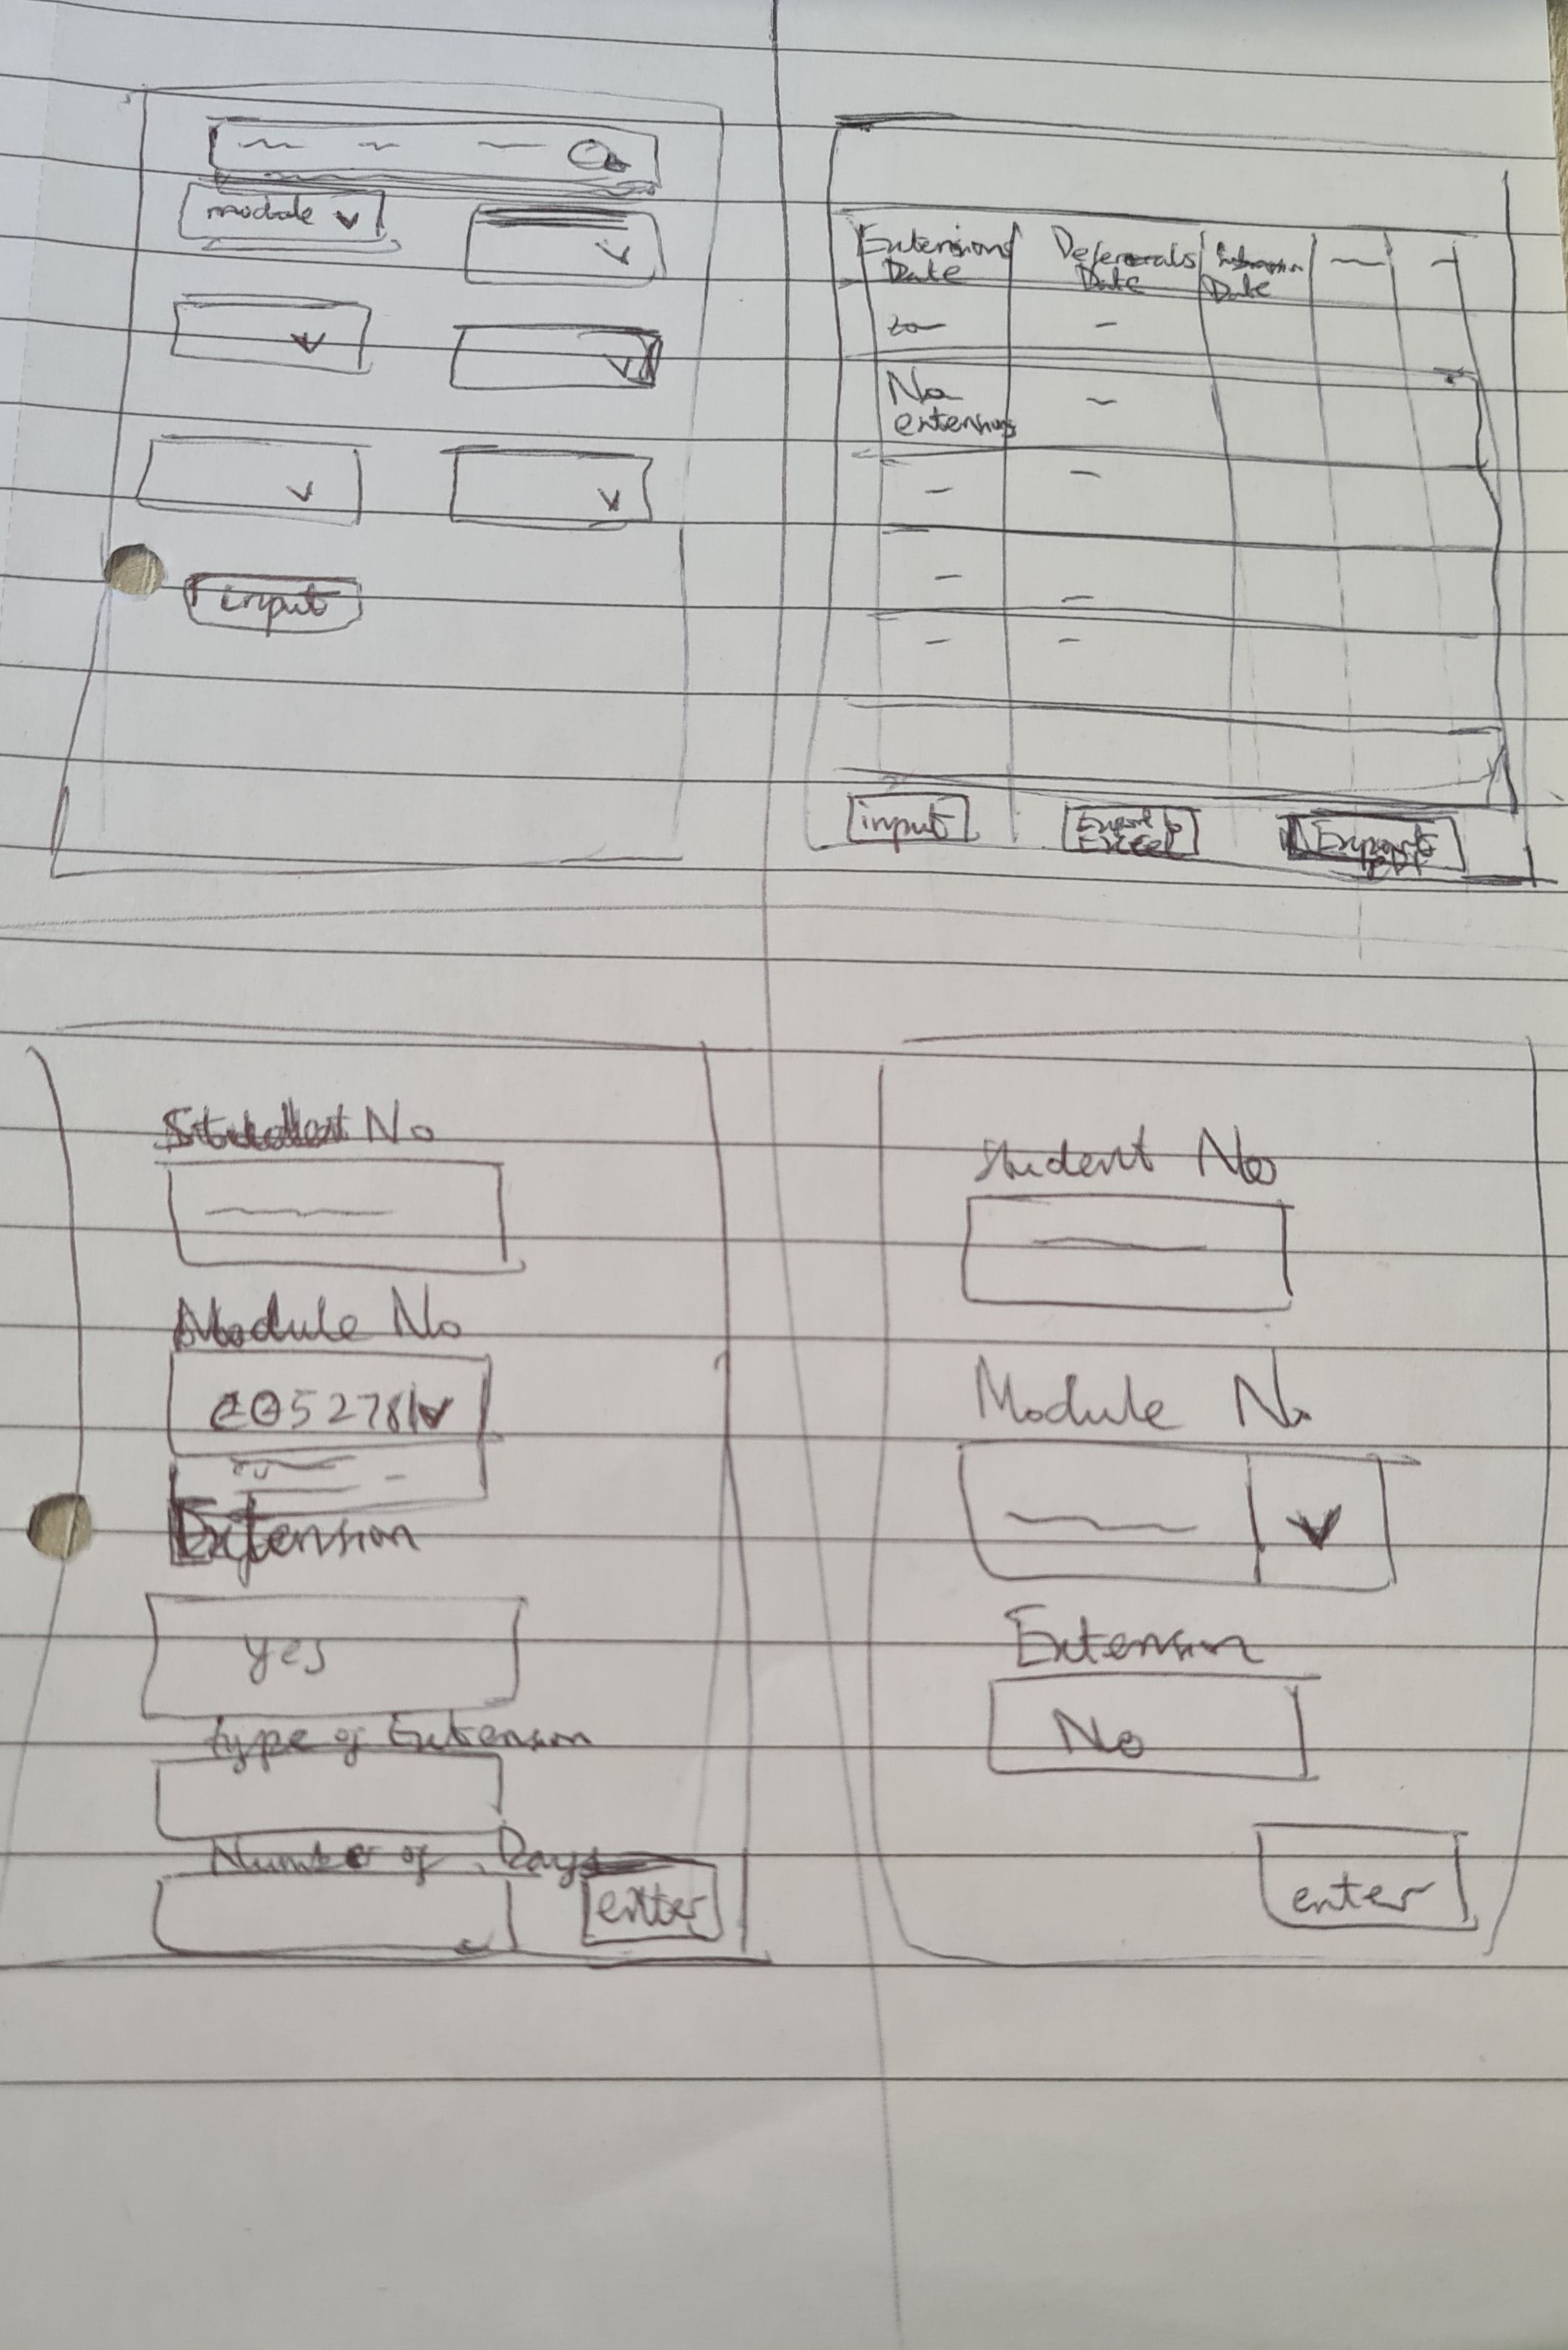 module
input
Extensions Deferrals
Date Date Date
No
extensions
input Export to Export
Excel PDF
Student No
Module No
Extension
yes
type of Extension
Number of Days
enter
Student No
Module No
Extension
No
enter